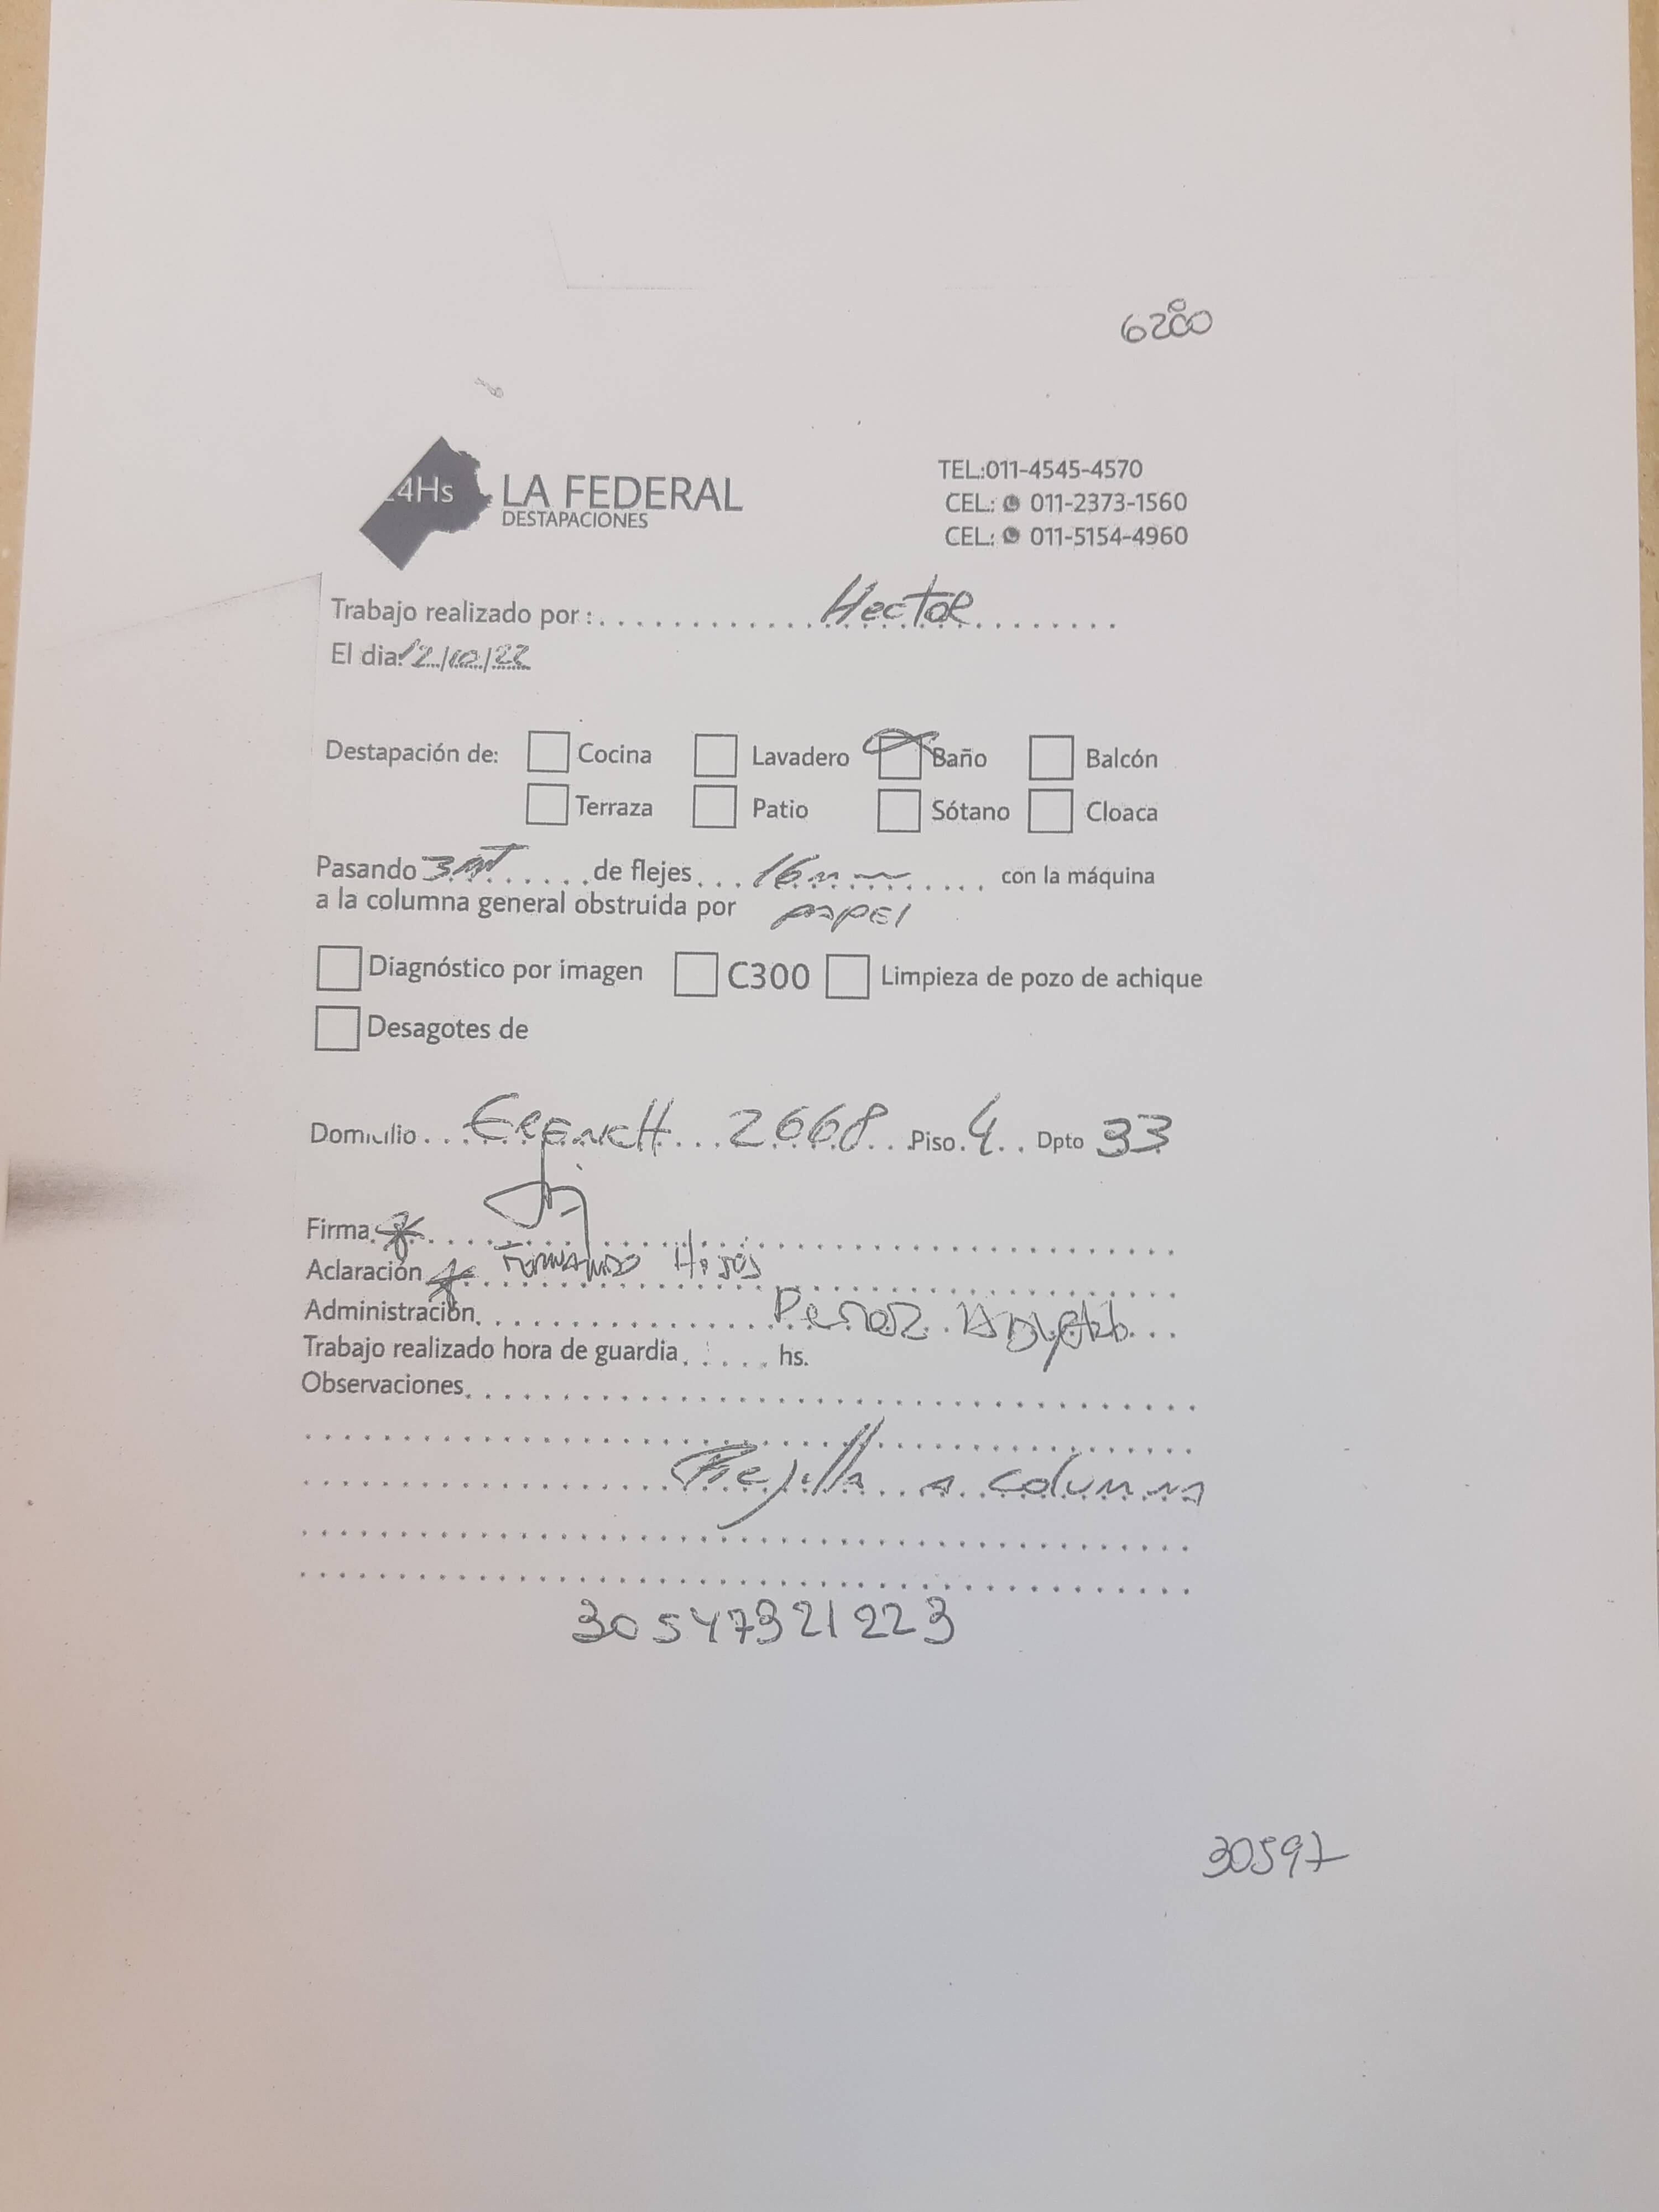 6200
4Hs
LA FEDERAL
DESTAPACIONES
TEL:011-4545-4570
CEL: 011-2373-1560
CEL: 011-5154-4960
Trabajo realizado por : Hector
El dia: 12/10/22
Destapación de: Cocina Lavadero Baño Balcón
Terraza Patio Sótano Cloaca
Pasando 3 MT de flejes 16 mm con la máquina
a la columna general obstruida por papel
Diagnóstico por imagen C300 Limpieza de pozo de achique
Desagotes de
Domicilio FRENCH 2668 Piso 4 Dpto 33
Firma
Aclaración
Administración
Trabajo realizado hora de guardia hs.
Observaciones
Rejilla a columna
30547321223
30597